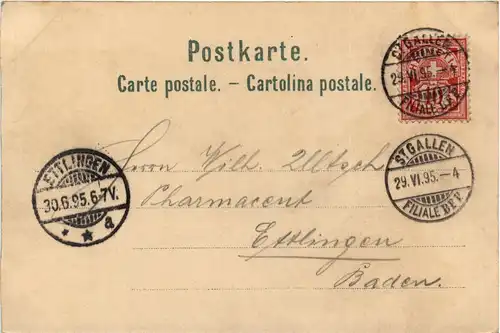 Postkarte.
Carte postale. – Cartolina postale.
ST GALLEN
29.VI.95.–4
FILIALE
ST GALLEN
29.VI.95.–4
FILIALE
ETTLINGEN
30.6.95.6-7V.
* * a
Herrn Wilh. Ulltsch
Pharmaceut
Ettlingen
Baden.